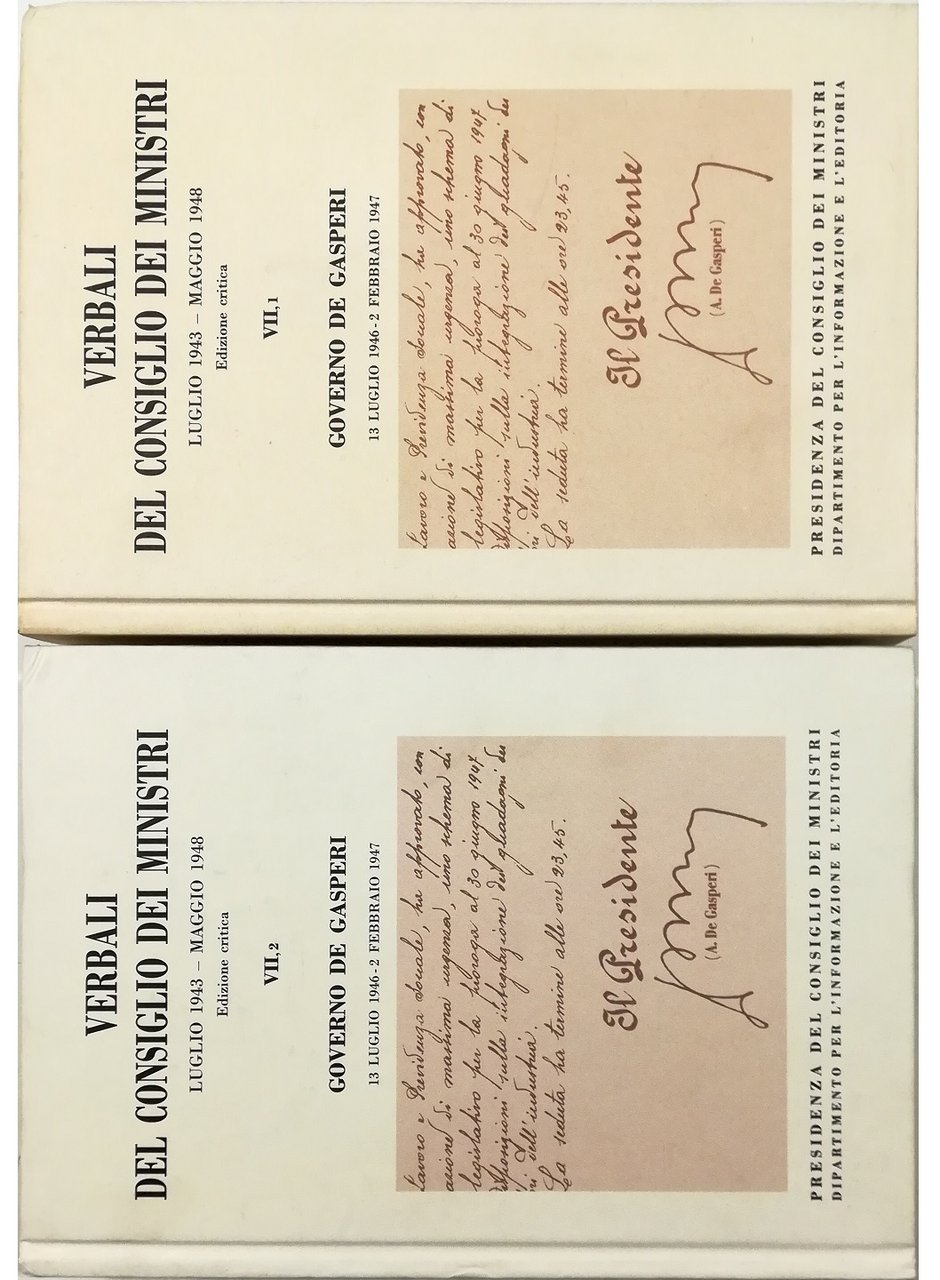 VERBALI
DEL CONSIGLIO DEI MINISTRI
LUGLIO 1943 – MAGGIO 1948
Edizione critica
VII,1
GOVERNO DE GASPERI
13 LUGLIO 1946 - 2 FEBBRAIO 1947
Lavoro e Previdenza Sociale, ha approvato, con
azione di massima urgenza, uno schema di
legislativo per la proroga al 30 giugno 1947
disposizioni sulla integrazione dei guadagni dei
ri dell'industria.
La seduta ha termine alle ore 23,45.
Il Presidente
(A. De Gasperi)
PRESIDENZA DEL CONSIGLIO DEI MINISTRI
DIPARTIMENTO PER L'INFORMAZIONE E L'EDITORIA
VERBALI
DEL CONSIGLIO DEI MINISTRI
LUGLIO 1943 – MAGGIO 1948
Edizione critica
VII,2
GOVERNO DE GASPERI
13 LUGLIO 1946 - 2 FEBBRAIO 1947
Lavoro e Previdenza Sociale, ha approvato, con
azione di massima urgenza, uno schema di
legislativo per la proroga al 30 giugno 1947
disposizioni sulla integrazione dei guadagni dei
ri dell'industria.
La seduta ha termine alle ore 23,45.
Il Presidente
(A. De Gasperi)
PRESIDENZA DEL CONSIGLIO DEI MINISTRI
DIPARTIMENTO PER L'INFORMAZIONE E L'EDITORIA